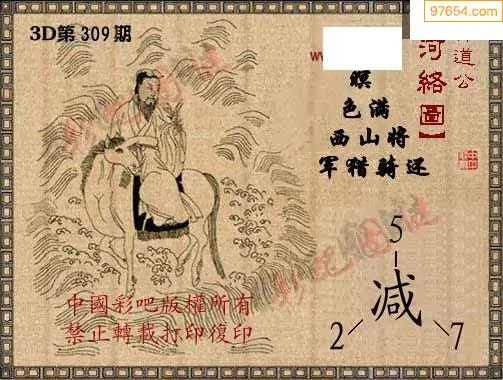 97654.com
3D第309期
道公
河络圖】
瞑
色满
西山将
军猎骑还
彩吧图谜
彩吧图谜
5
减
2
7
中國彩吧版權所有
禁止轉載打印復印